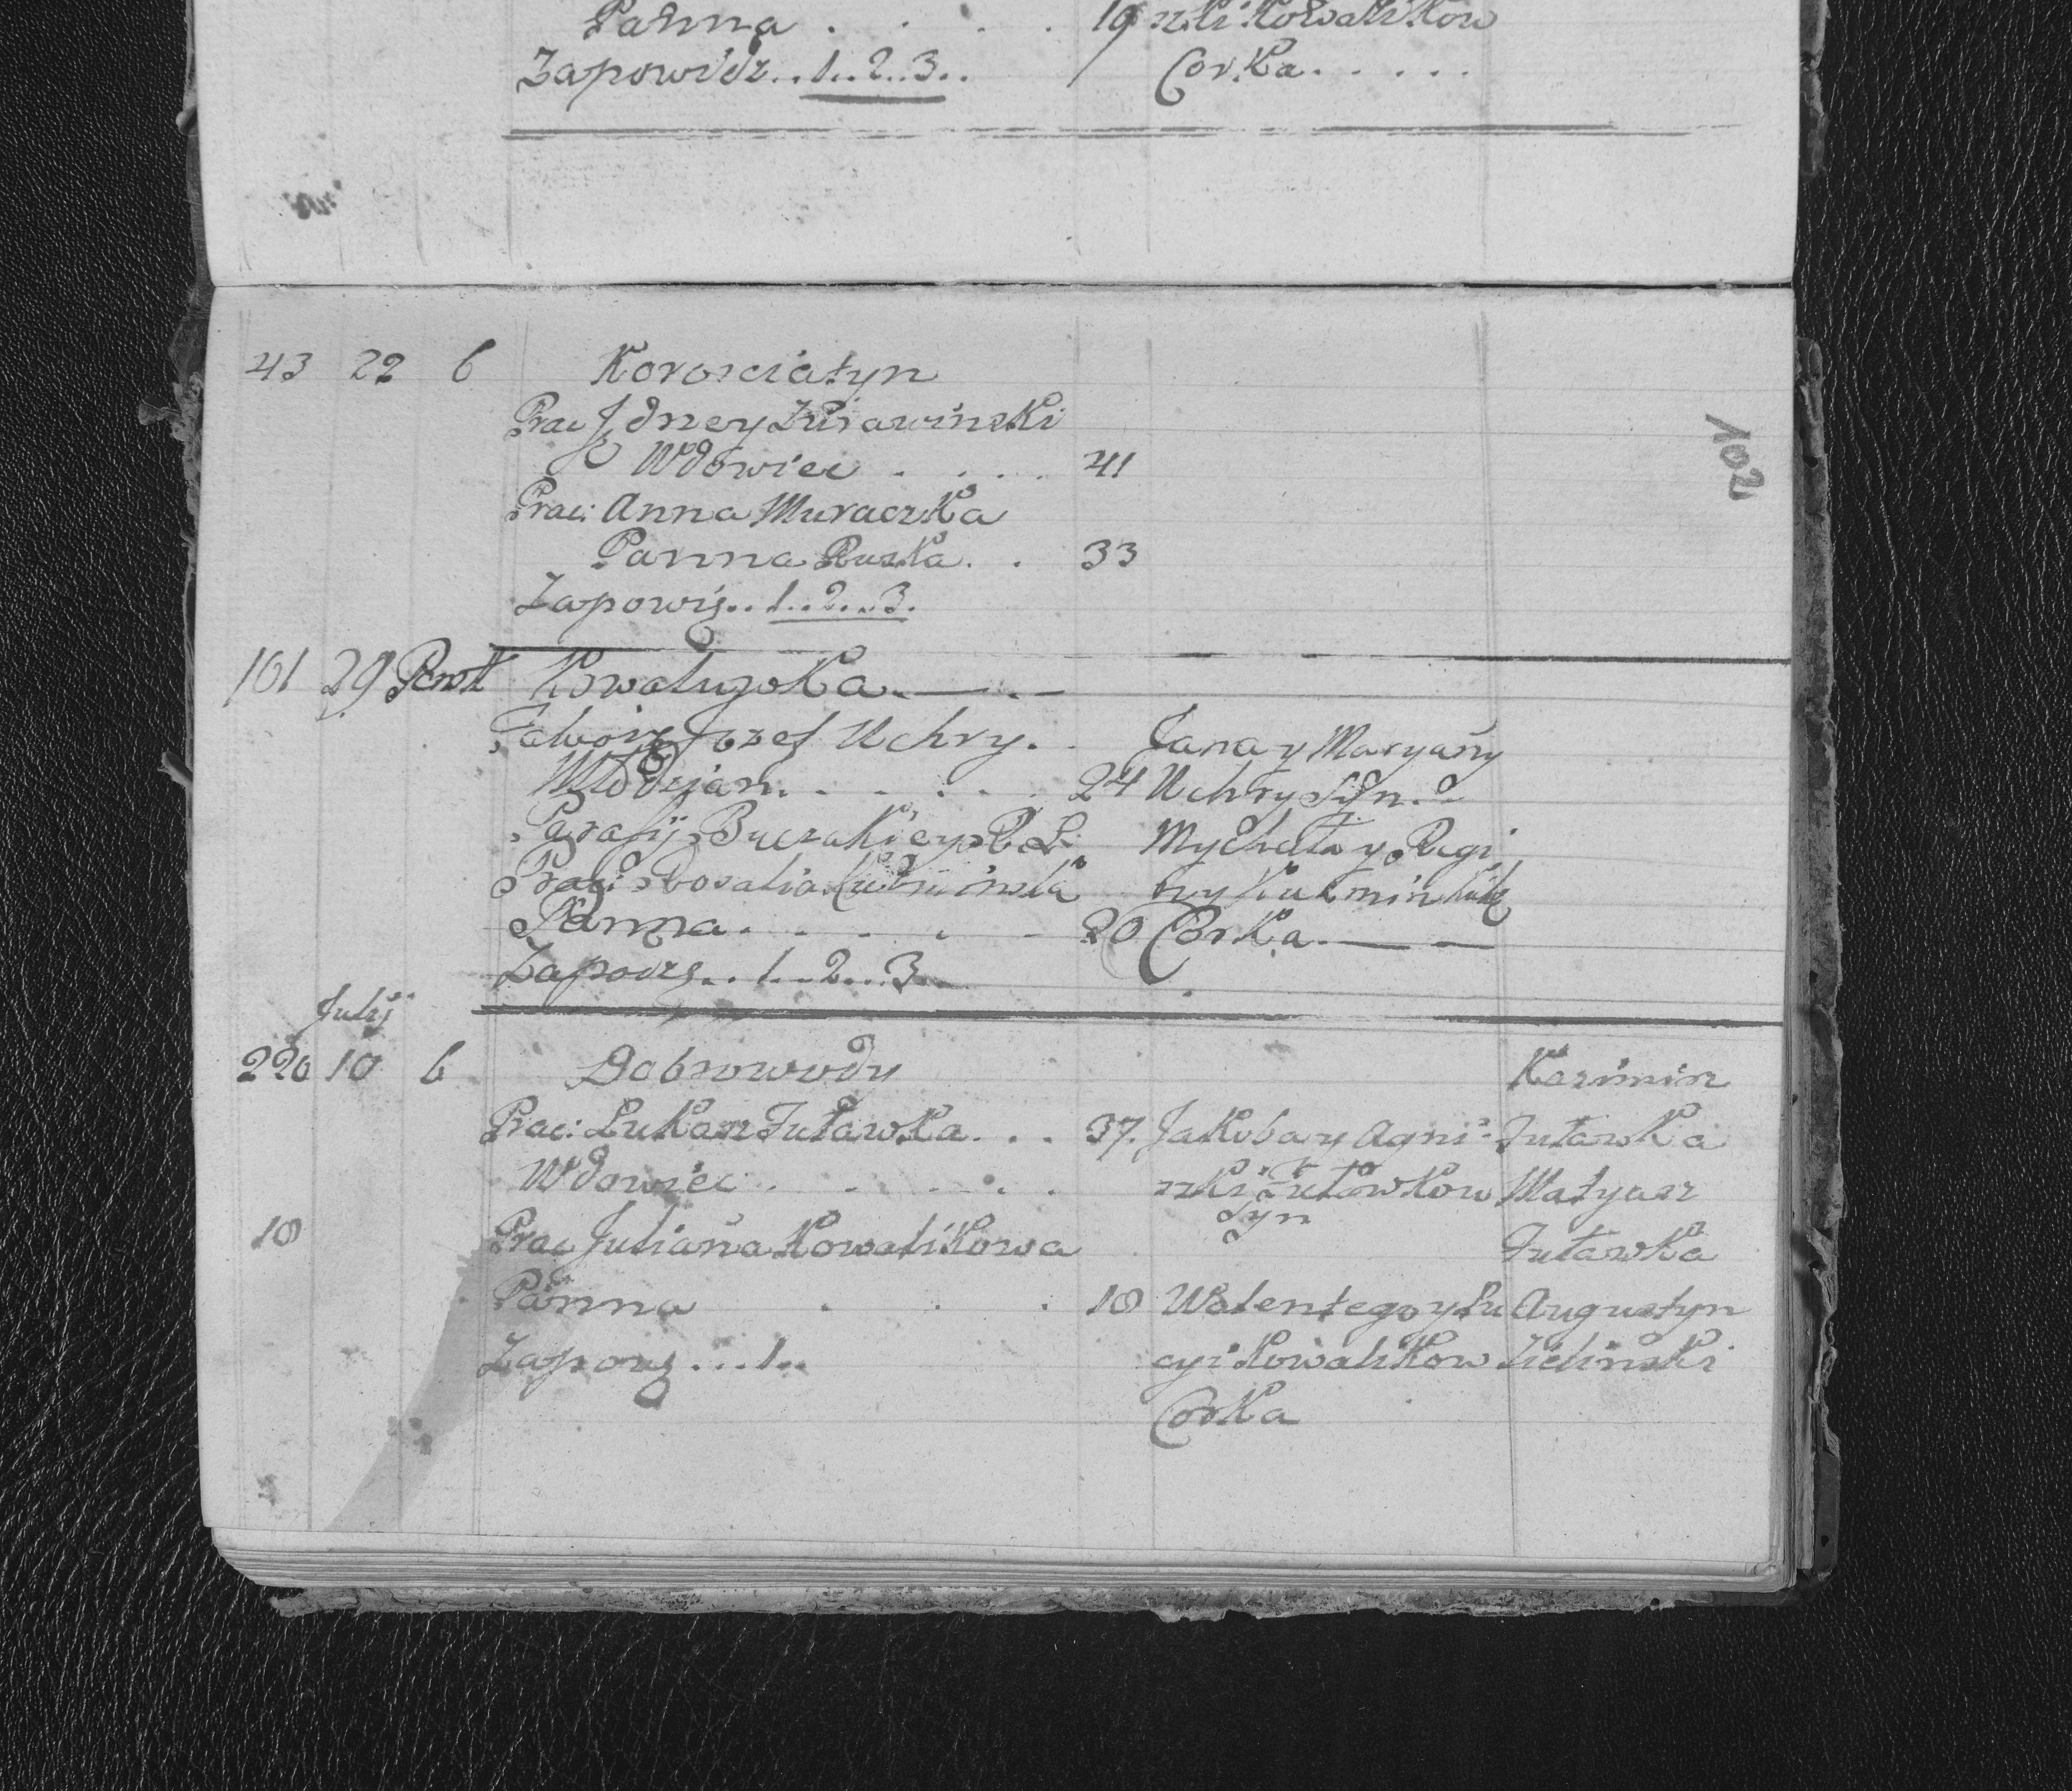 Panna . . . . 19 szki Kowalikow
Zapowidz..1..2..3.. Corka . . . . .
43 22 6 Korosciatyn
102
Prac Jdrzey Zurawinski
Wdowiec . . . . 41
Prac: Anna Muraczka
Panna Ruska . . 33
Zapowiz..1..2..3.
101 29 Powt Kowalużka
Jozef Uchry . . Jana y Maryany
Młodzian . . . . . . 24 Uchry Syn
Parafij Buczackiey R. L. Mychała y Regi
Prac: Rosalia ny
Panna . . . . . 20 Corka
Zapowz..1...2...3
Julij
220 10 6 Dobrowody Kazimirz
Prac: Lukasz Futawka . . . 37. Jakoba y Agni- Futawka
Wdowiec . . . . . . szki Futawkow Matyasz
Syn
18 Prac Juliana Kowalikowa Futawka
Panna . . . 18 Walentego y Łu Augustyn
Zapowz ...1.. cyi Kowalikow Zielinski
Corka